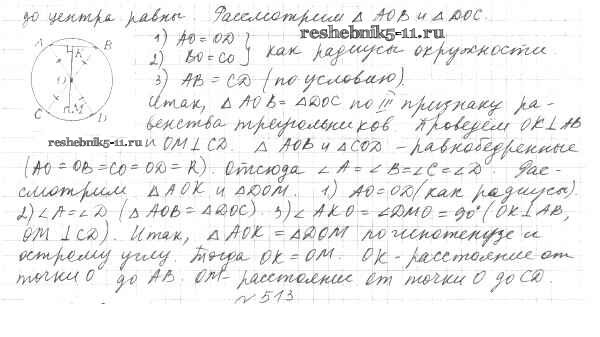 до центра равны. Рассмотрим △ AOB и △ DOC.
reshebnik5-11.ru
1) AO = OD }
2) BO = CO } как радиусы окружности.
3) AB = CD (по условию).
A B K O C M D
Итак, △ AOB = △ DOC по III признаку ра-
reshebnik5-11.ru
венства треугольников. Проведем OK ⊥ AB
и OM ⊥ CD. △ AOB и △ COD - равнобедренные
(AO = OB = CO = OD = R). Отсюда ∠A = ∠B = ∠C = ∠D. Рас-
смотрим △ AOK и △ DOM. 1) AO = OD (как радиусы).
2) ∠A = ∠D (△ AOB = △ DOC). 3) ∠AKO = ∠DMO = 90° (OK ⊥ AB,
OM ⊥ CD). Итак, △ AOK = △ DOM по гипотенузе и
острому углу. Тогда OK = OM. OK - расстояние от
точки O до AB. OM - расстояние от точки O до CD.
№ 513